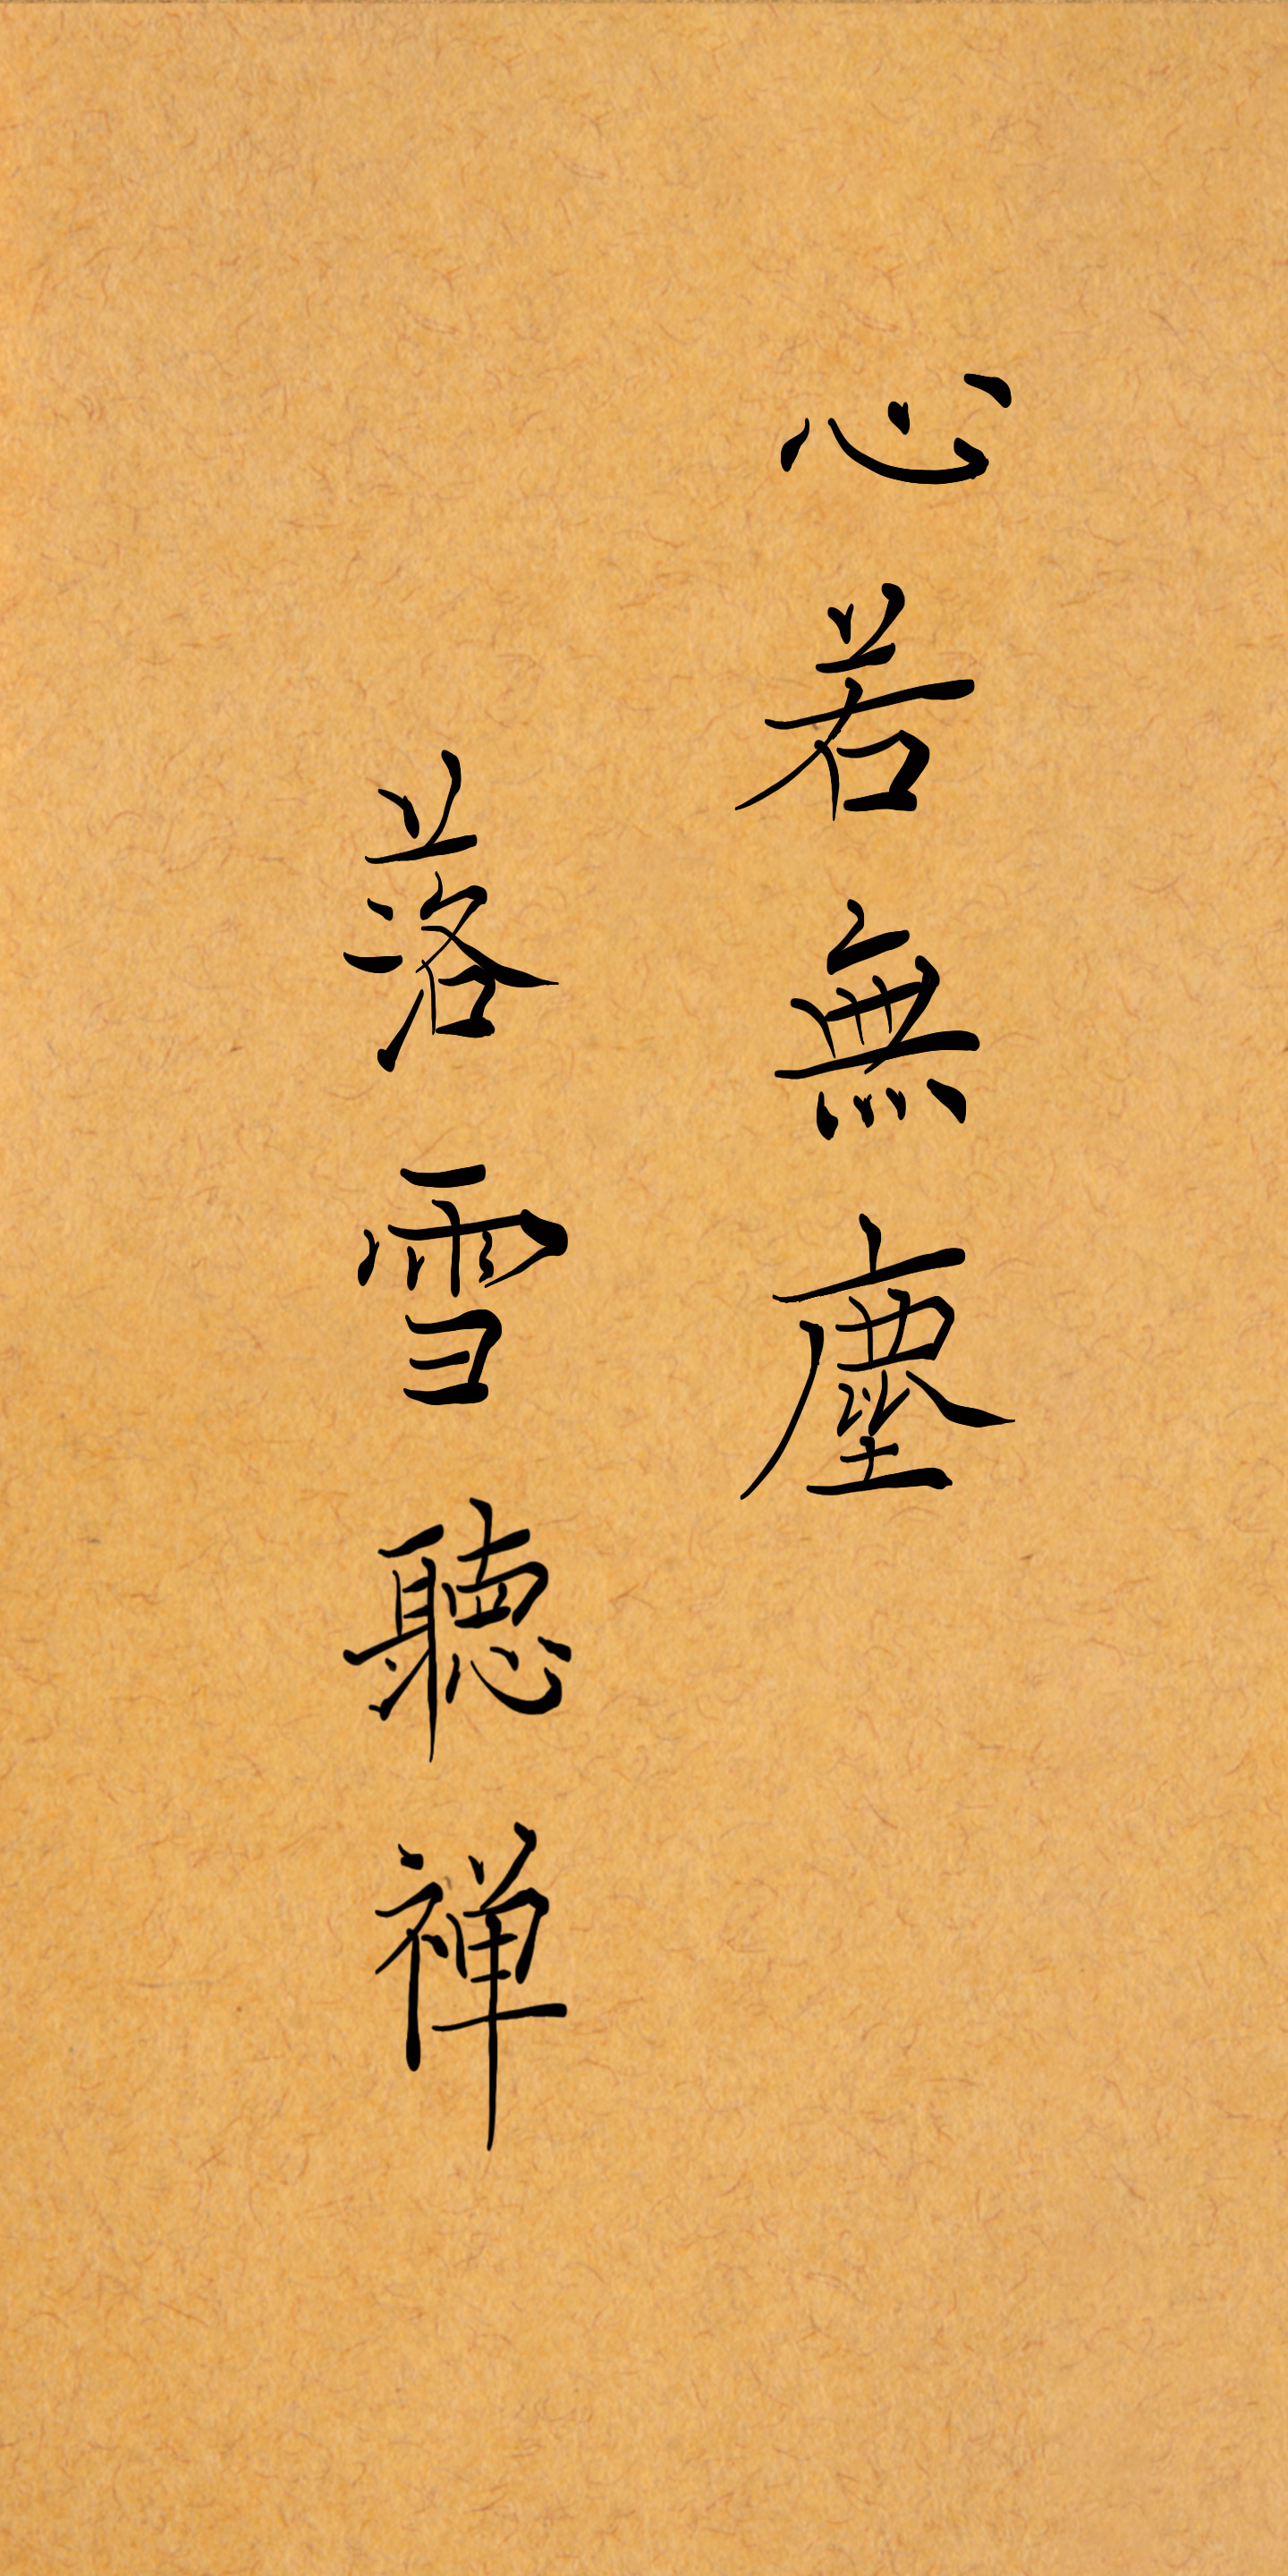 心若無塵
落雪聽禅